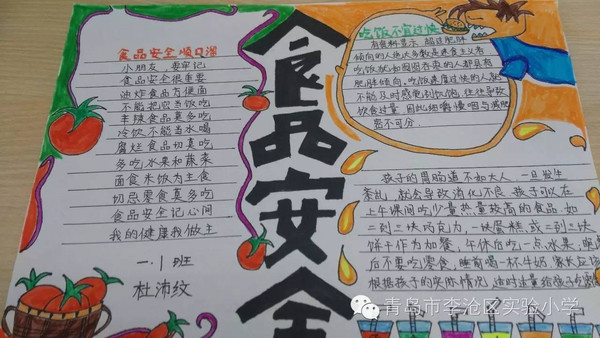 食品安全顺口溜
小朋友，要牢记
食品安全很重要
油炸食品方便面
不能把它当饭吃
羊陕食品莫多吃
冷饮不能当水喝
腐烂食品切莫吃
多吃水果和蔬菜
面食米饭为主食
切忌零食莫多吃
食品安全记心间
我的健康我做主
一.1班
杜沛纹
食品安全
吃饭不宜过快
有资料显示，超过肥胖
倾向的人绝大多数是速食主义者
吃饭狼
肥胖倾向，吃饭速度过快的人就
不能及时感觉到饥饱，往往导致
饮食过量，因此细嚼慢咽与减肥
密不可分
孩子的胃肠道不如大人，一旦发生
紊乱，就会导致消化不良，孩子可以在
上午课间吃少量热量较高的食品，如
二到三块巧克力，一块蛋糕，或二到三块
饼干作为加餐，午休后吃一点水果，晚
后不要吃零食，睡前喝一杯牛奶，家长应
根据孩子的实际情况，适时适量给孩子
青岛市李沧区实验小学